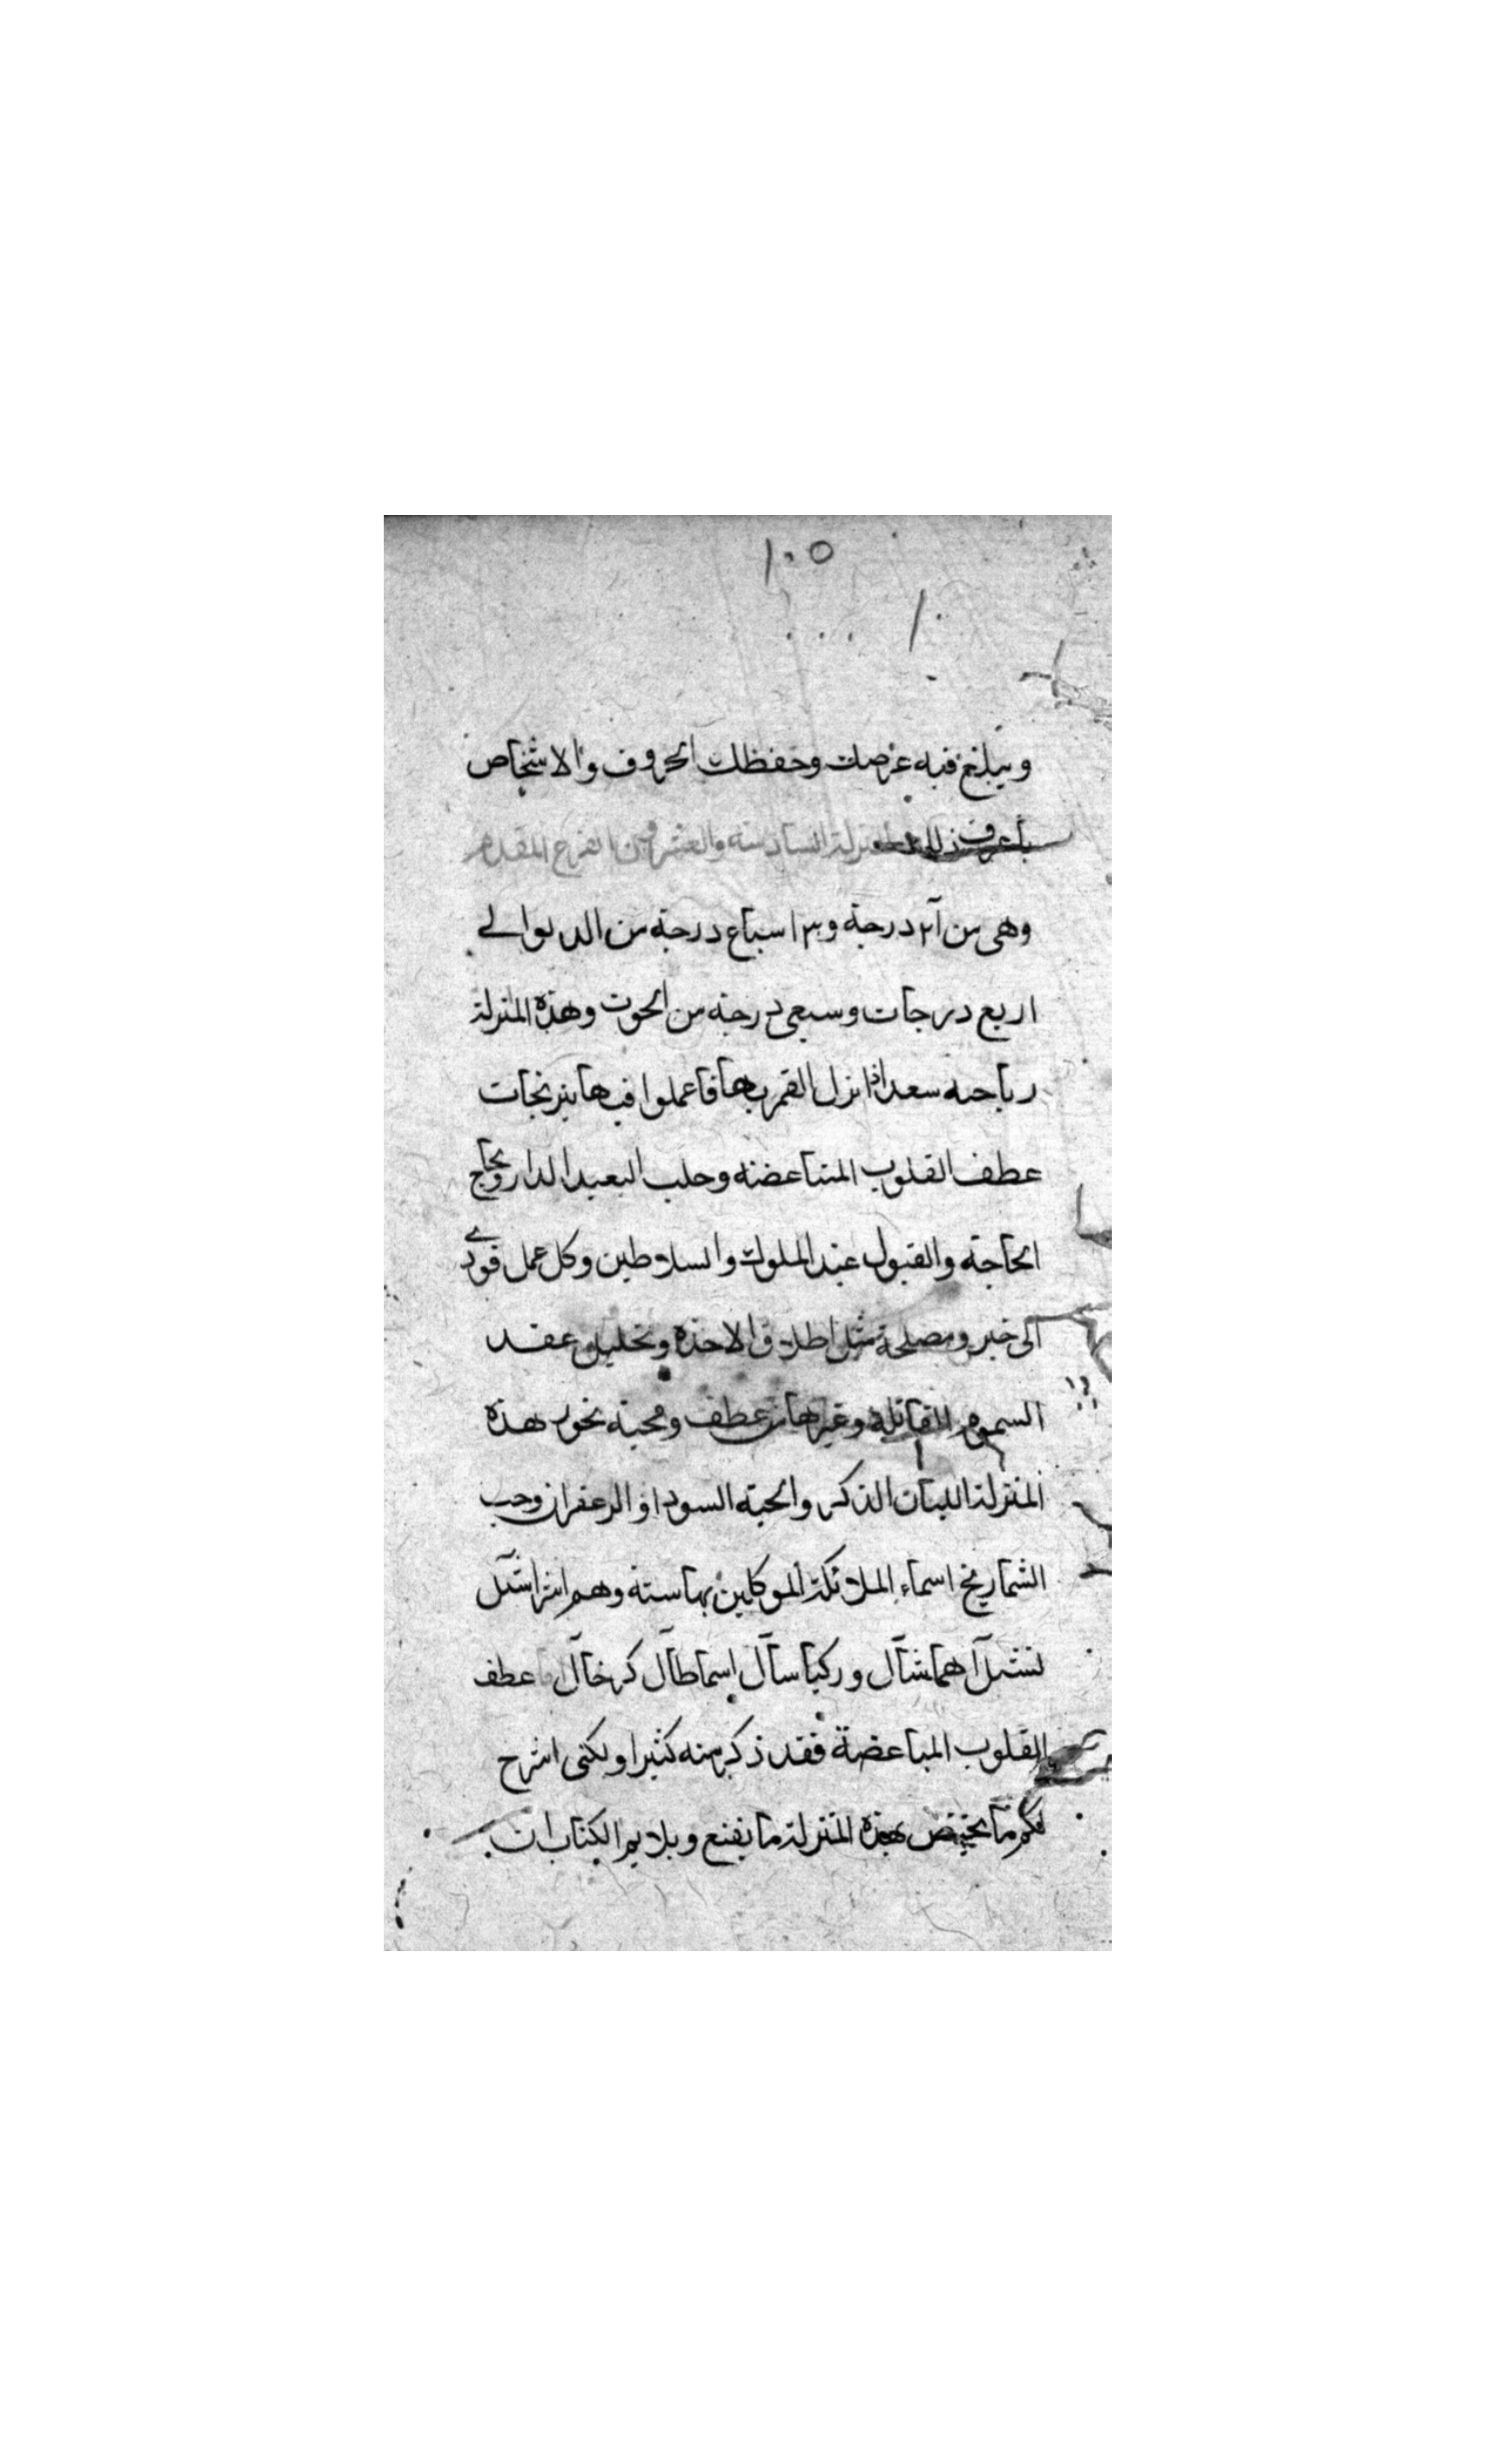 ١٠٥
ويبلغ فيه غرضك وحفظك الحروف والاشخاص
باعرف ذلك المنزلة السادسة والعشرون الفرع المقدم
وهى من آ٢ درجة و٣ اسباع درجة من الدلو الے
اربع درجات وسبعى درجة من الحوت وهذه المنزلة
رياحيه سعد اذا نزل القمر بها فاعملوا فيها نيرنجات
عطف القلوب المتباعضه وجلب البعيد الدار ونجاح
الحاجة والقبول عند الملوك والسلاطين وكل عمل يودے
الى خير ومصلحة مثل اطلاق الاخذه وتحليل عقد
السموم القاتلة وغيرها من عطف ومحبة بخور هذه
المنزلة اللبان الذكر والحبة السودا والزعفران وحب
الشماريخ اسماء الملائكة الموكلين بها ستة وهم
وركياسآل اسماطآل كرخآل عطف
القلوب المباعضة فقد ذكر منه كثيرا ولكنى اشرح
لكم ما يختص بهذه المنزلة ما يقنع ويلايم الكتاب ان